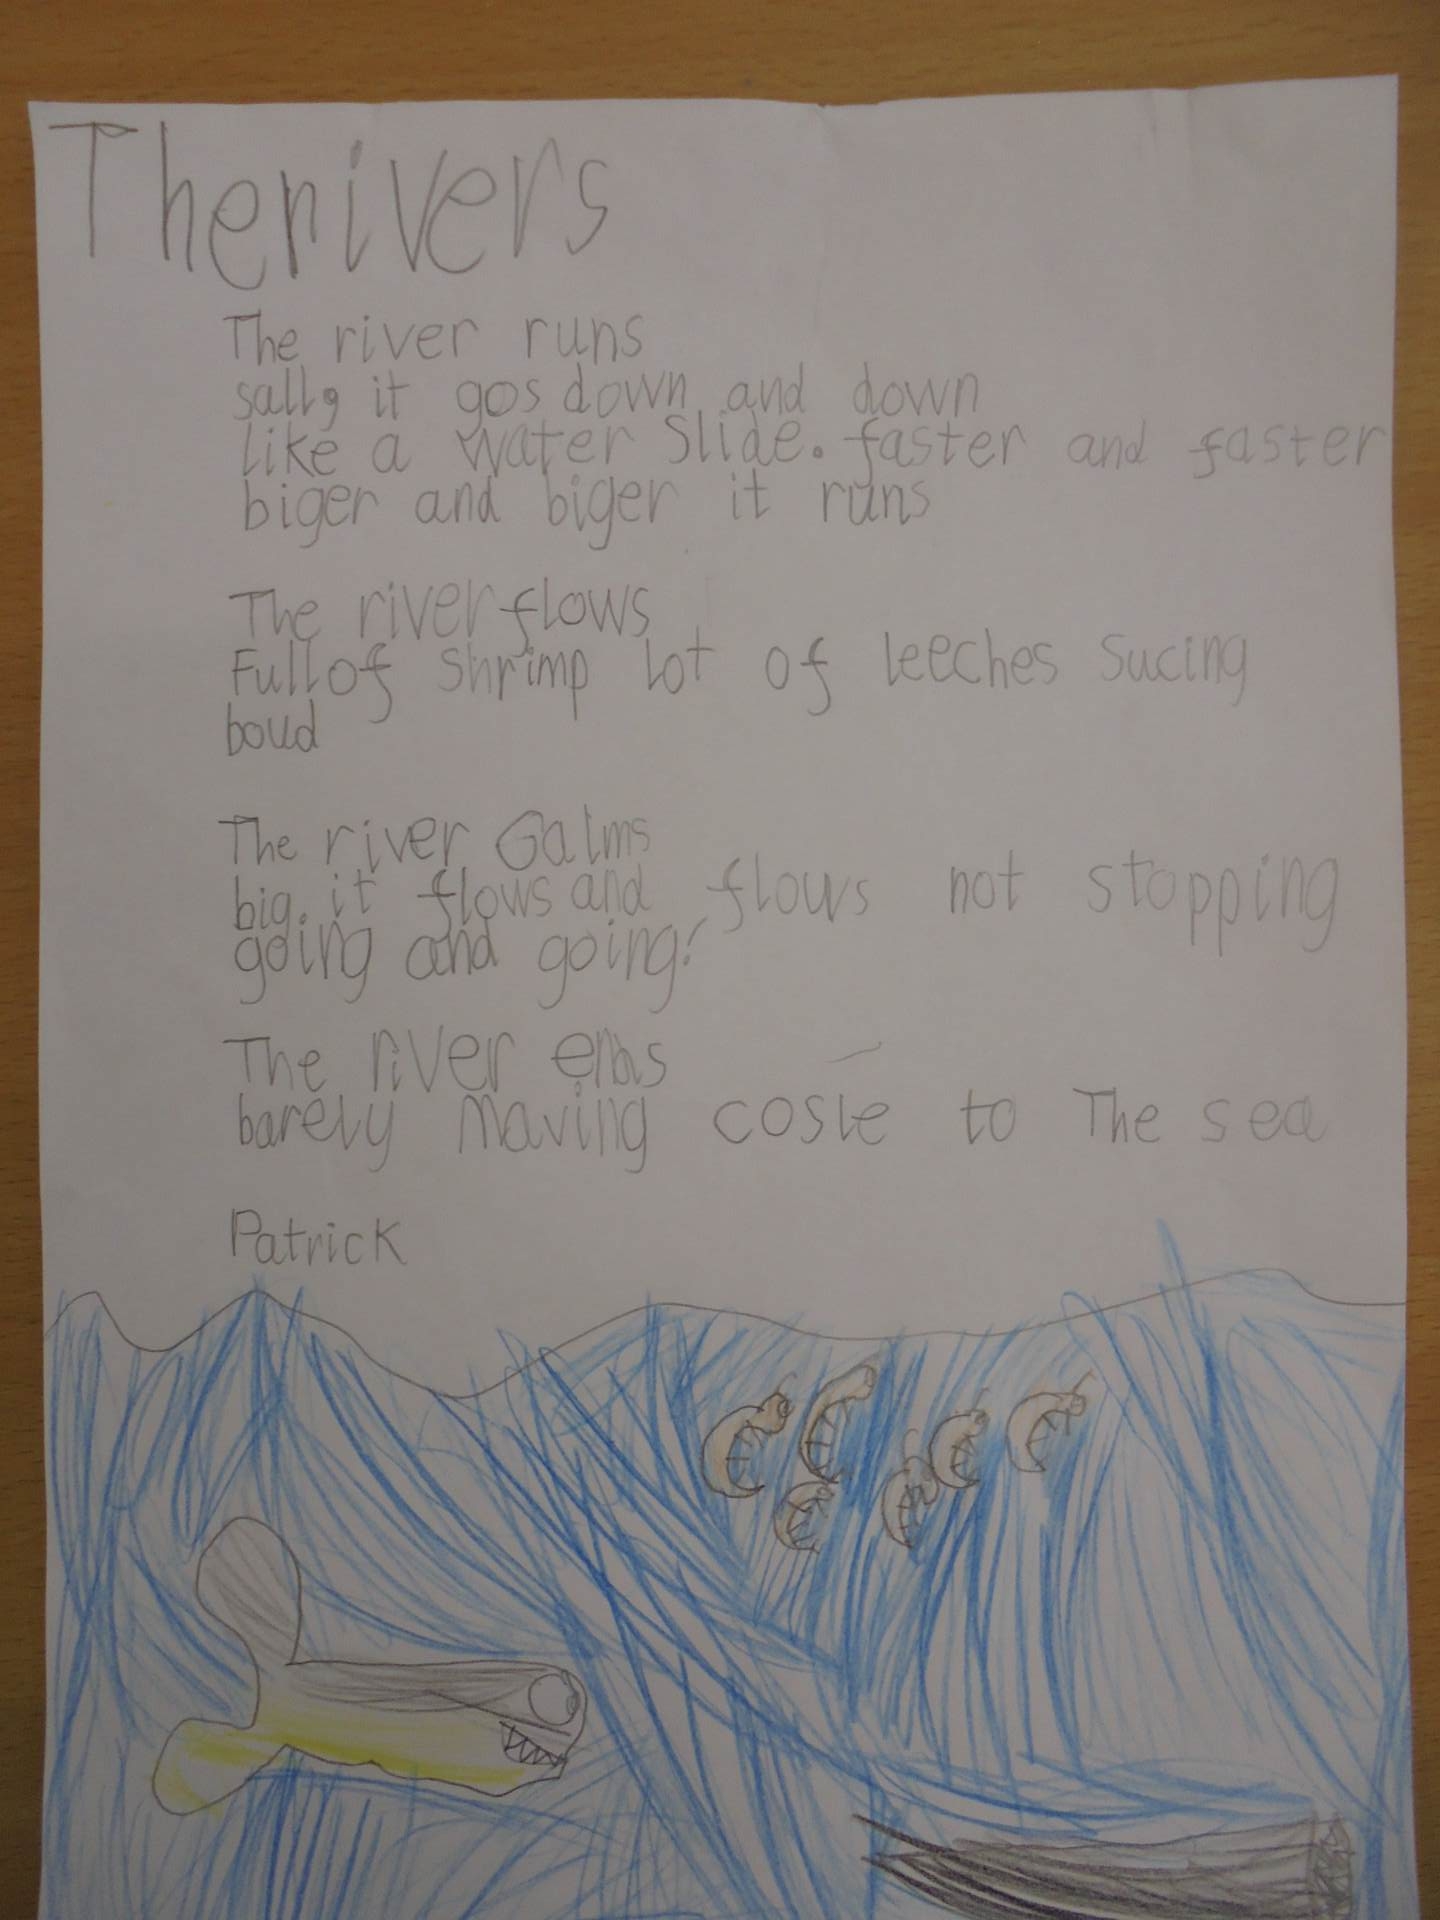 The rivers
The river runs
sally it gos down and down
like a water slide. faster and faster
biger and biger it runs
The river flows
Full of shrimp lot of leeches sucing
boud
The river Galms
big. it flows and flows not stopping
going and going!
The river ends
barely maving cosle to The sea
Patrick